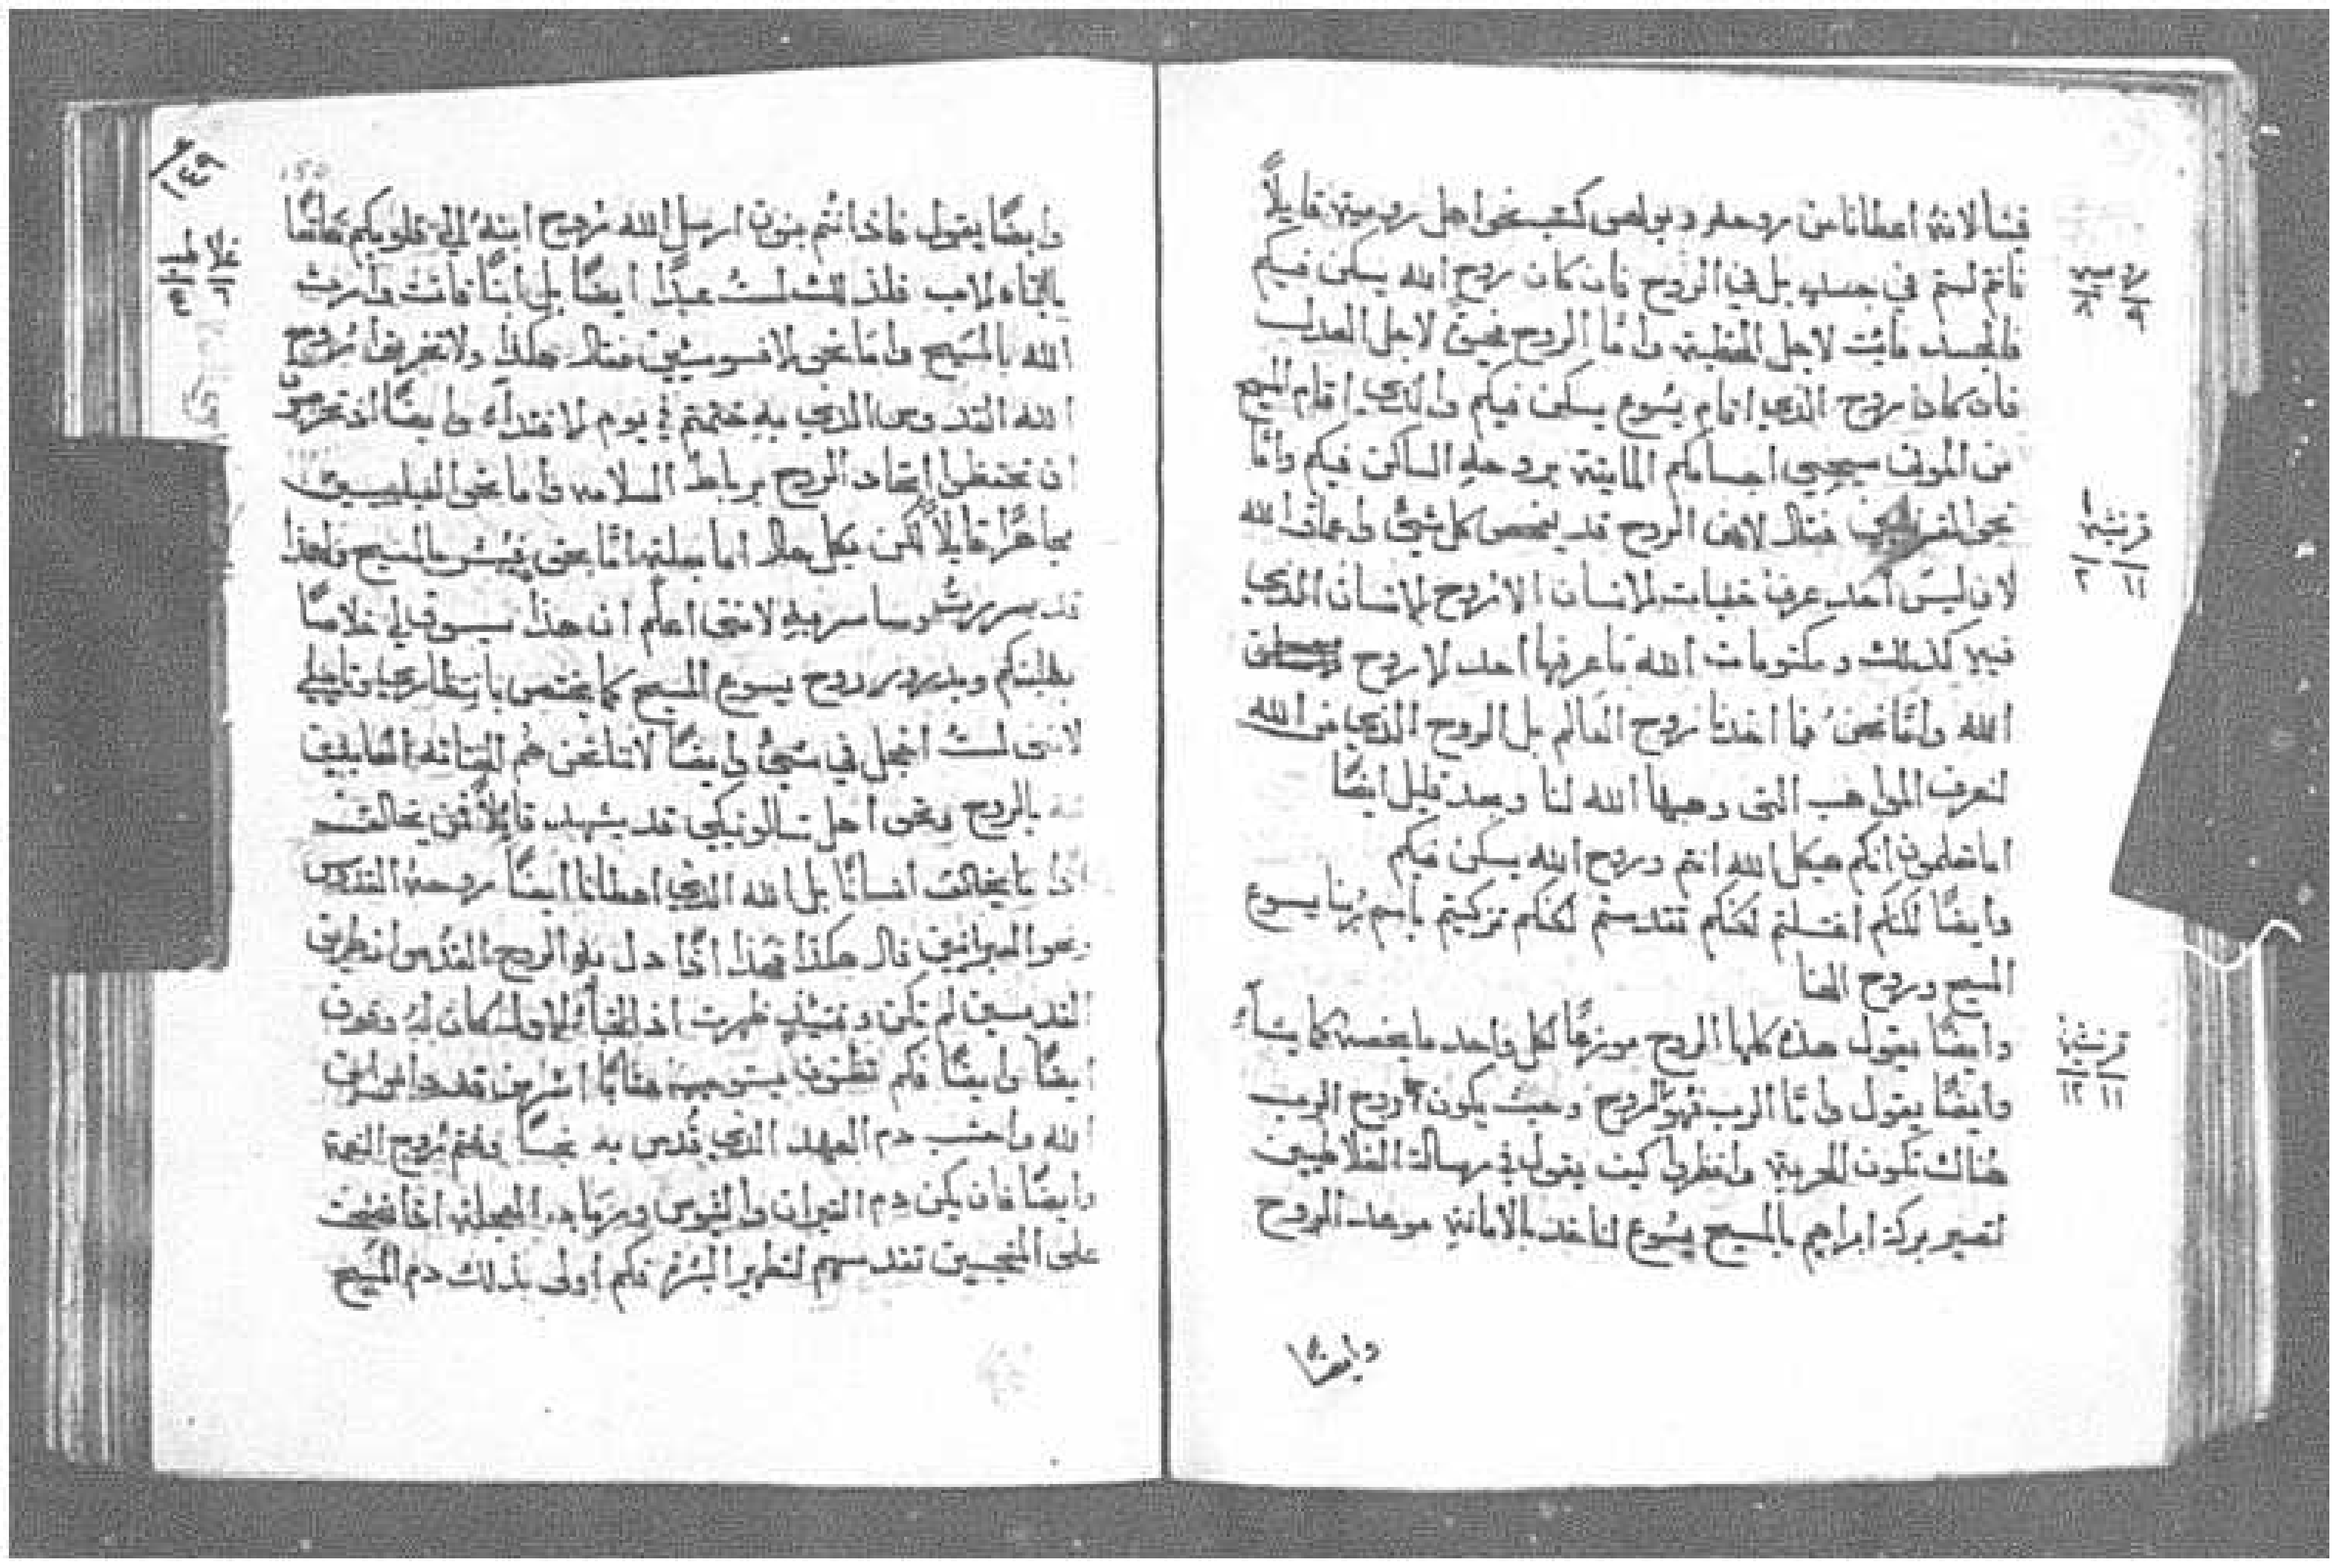 فينا لانه اعطانا من روحه وبولص كتب نحو اهل رومية قايلاً
فانتم لستم في جسد بل في الروح فان كان روح الله يسكن فيكم
فالجسد مائت لاجل الخطية وامّا الروح فحيّ لاجل العدل
فان كان روح الذي اقام يسوع يسكن فيكم فالذي اقام المسيح
من الموتى سيحيي اجسامكم المايتة بروحه الساكن فيكم وامّا
نحو القرنثيين فقال لان الروح قد يفحص كل شيّ واعماق الله
لان ليس احد عرف خفيات الانسان الا روح الانسان الذي
فيه كذلك ومكتومات الله ما عرفها احد الا روح
الله وامّا نحن فما اخذنا روح العالم بل الروح الذي من الله
لنعرف المواهب التي وهبها الله لنا وبعد قليل ايضًا
اما تعلمون انكم هيكل الله انتم وروح الله يسكن فيكم
وايضًا لكنكم اغتسلتم لكنكم تقدستم لكنكم تزكيتم باسم ربنا يسوع
المسيح وروح الهنا
وايضًا يقول هذه كلها الروح موزعًا لكل واحد ما يخصه كما يشأ
وايضًا يقول وامّا الرب فهو الروح وحيث يكون روح الرب
هناك تكون الحرية وانظروا كيف يقول في رسالة الغلاطيين
لتصير بركة ابراهيم بالمسيح يسوع لناخذ بالامانة موعد الروح
وايضًا
رومية
٨ ٩
قرنثية ١
٢ ١١
قرنثية
١٢ ١١
١٤٩
150
غلاطية
٤ ٦
وايضًا يقول فاذ انتم بنون ارسل الله روح ابنه الى قلوبكم هاتفًا
يا ابتاه الاب فلذلك لست عبدًا ايضًا بل ابنًا فانت وارث
الله بالمسيح وامّا نحو الافسوسيين فقال هكذا ولا تحزنوا روح
الله القدوس الذي به ختمتم في يوم الافتداء وايضًا
ان تحفظوا اتحاد الروح برباط السلامه وامّا نحو الفيلبسيين
قايلاً لكن بكل حال اما بعلة امّا بحق يبشر بالمسيح وبهذا
قد سررت وساسر به لانني اعلم ان هذا سيوول لي خلاصًا
بطلبتكم روح يسوع المسيح كما يختص بانتظاري وتاملي
لانني لست اخجل في شيّ وايضًا لاننا نحن هم الختانة العابدين
الله بالروح ونحو اهل تسالونيكي قد يشهد قايلاً فمن يخالف
اذًا ما يخالف انسانًا بل الله الذي اعطانا ايضًا روحه القدوس
ونحو العبرانيين قال هكذا فهذا اذًا دل عليه الروح القدس ان طريق
القديسين لم تكن حينئذٍ ظهرت اذ القبة الاولى كان لها وقوف
ايضًا وايضًا فكم تظنون يستوجب عقابًا اشر من قد داس ابن
الله واحتسب دم العهد الذي قُدس به نجسًا وشتم روح النعمة
وايضًا فان يكن دم الثيران والتيوس ورماد العجلة اذا نضحت
على المنجسين تقدسهم لتطهير البشرة فكم اولى بذلك دم المسيح